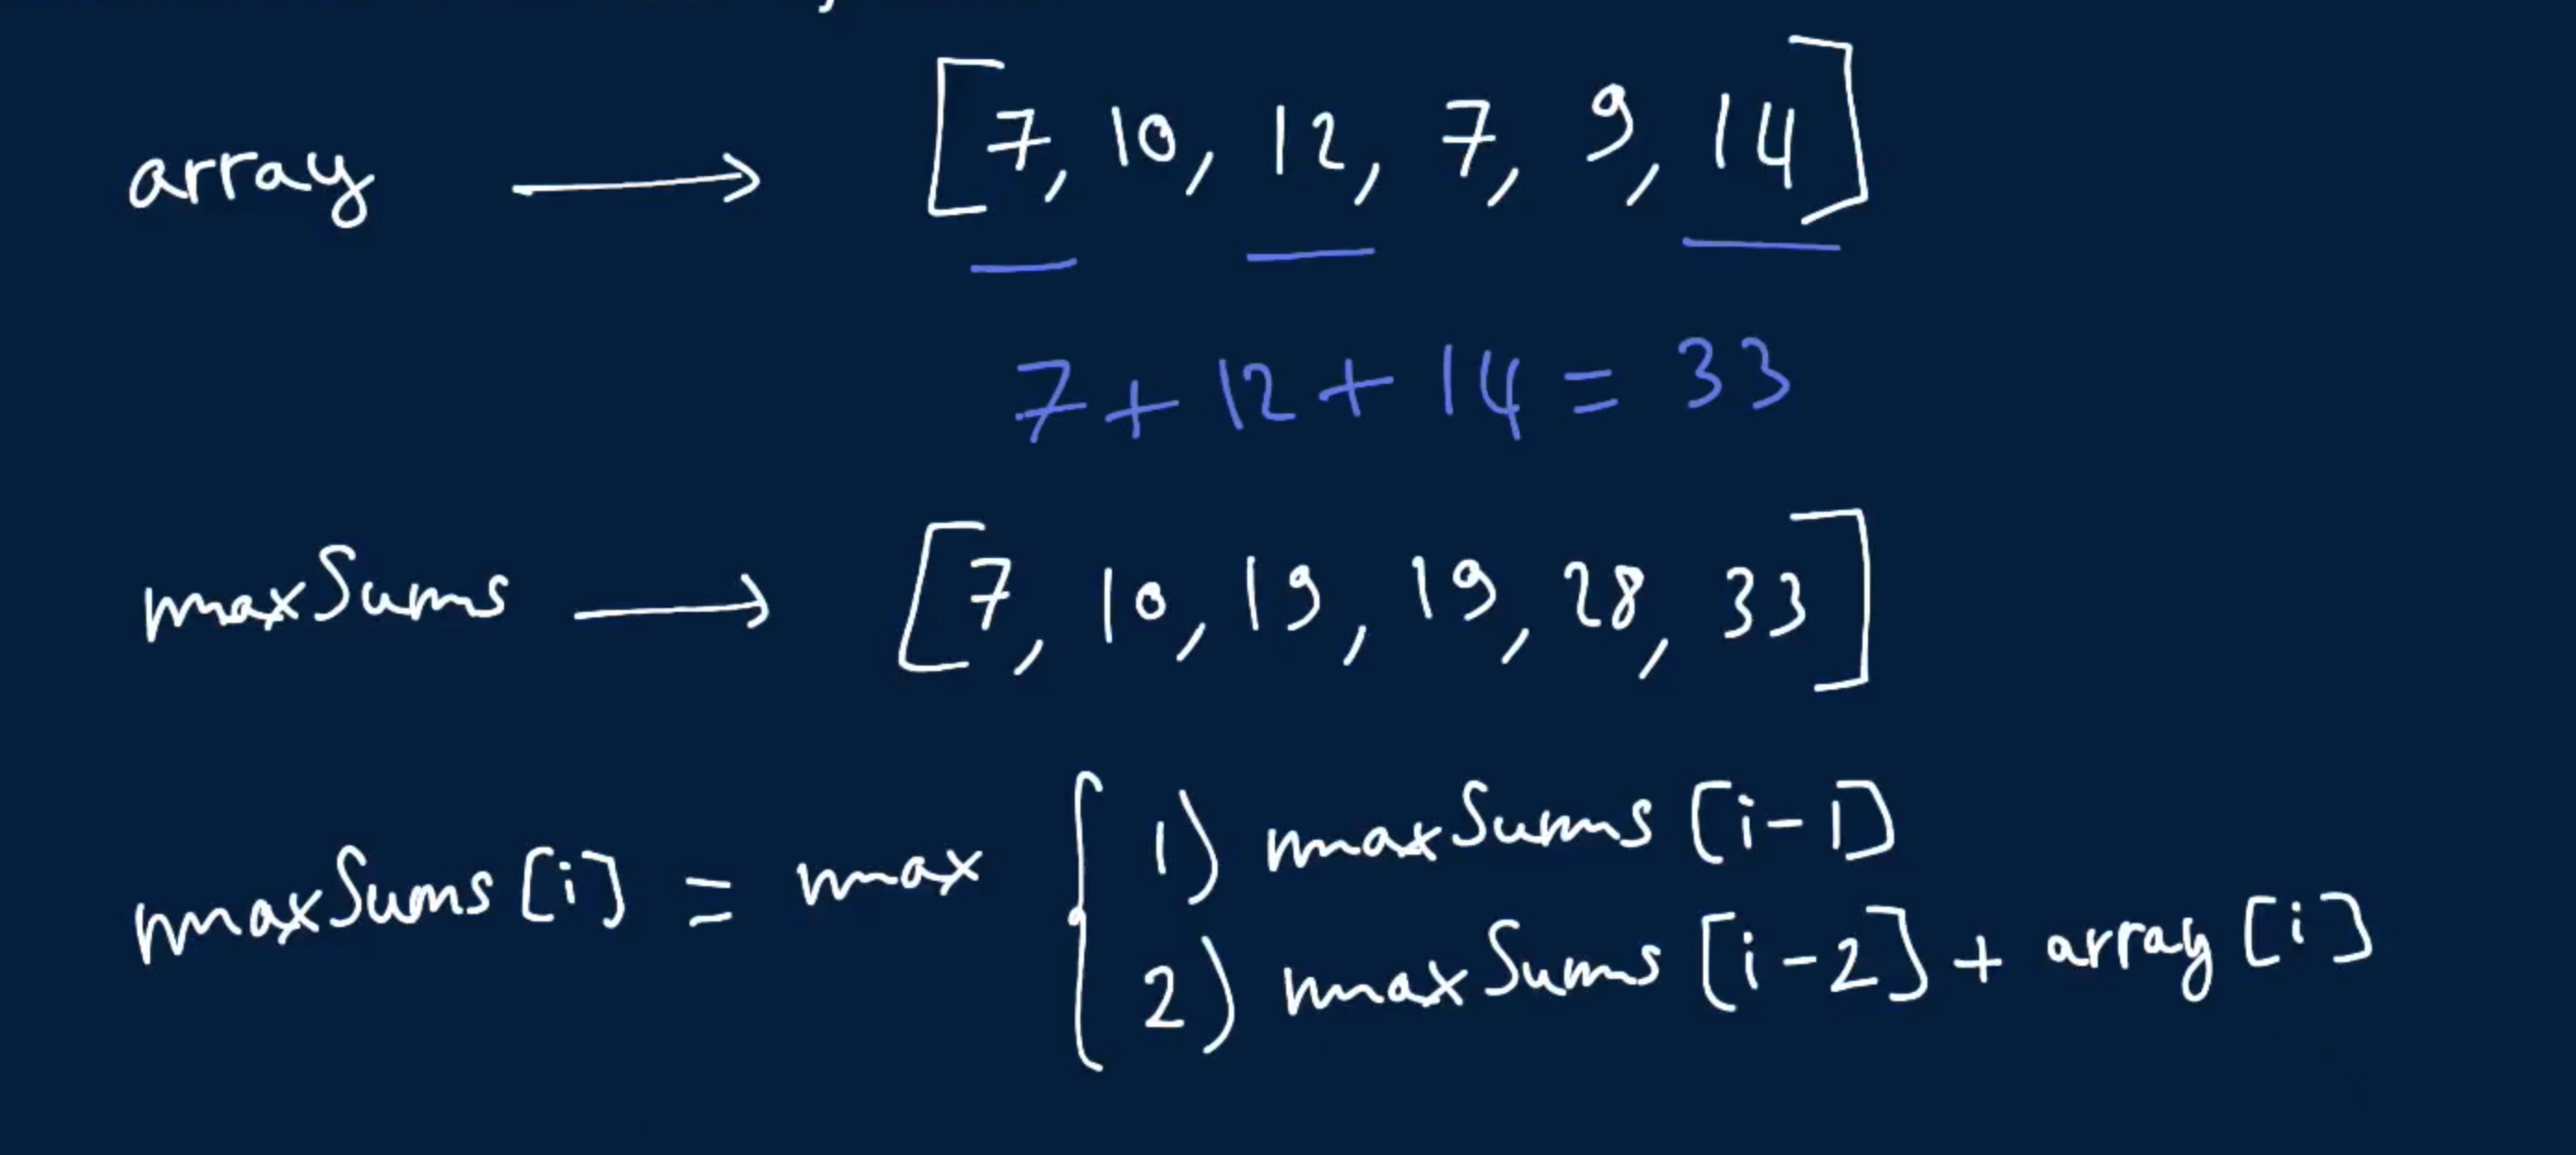 array → [7, 10, 12, 7, 9, 14]
7 + 12 + 14 = 33
maxSums → [7, 10, 19, 19, 28, 33]
maxSums[i] = max { 1) maxSums[i-1]
2) maxSums[i-2] + array[i]